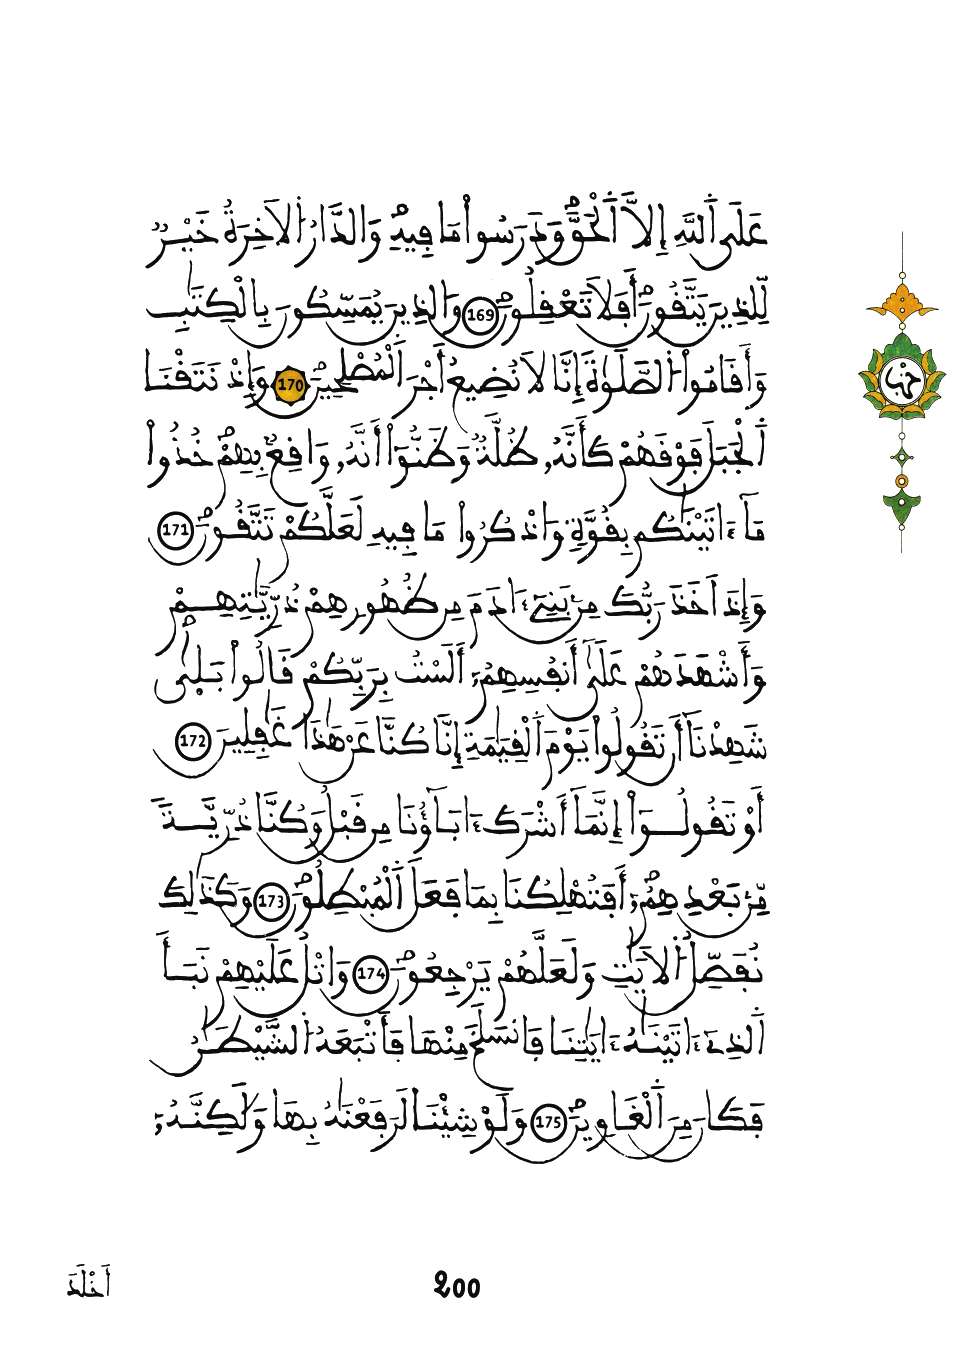 عَلَى اَ۬للَّهِ إِلَّا اَ۬لْحَقَّ وَدَرَسُواْ مَا فِيهِ وَالدَّارُ اُ۬لَاخِرَةُ خَيْرٞ
لِّلذِينَ يَتَّقُونَ أَفَلَا تَعْقِلُونَ 169 وَالذِينَ يُمَسِّكُونَ بِالْكِتَٰبِ
وَأَقَامُواْ اُ۬لصَّلَوٰةَ إِنَّا لَا نُضِيعُ أَجْرَ اَ۬لْمُصْلِحِينَ 170 وَإِذْ نَتَقْنَا
اَ۬لْجَبَلَ فَوْقَهُمْ كَأَنَّهُۥ ظُلَّةٞ وَظَنُّوٓاْ أَنَّهُۥ وَاقِعٌۢ بِهِمْ خُذُواْ
مَآ ءَاتَيْنَٰكُم بِقُوَّةٖ وَاذْكُرُواْ مَا فِيهِ لَعَلَّكُمْ تَتَّقُونَ 171
وَإِذَ اَخَذَ رَبُّكَ مِنۢ بَنِےٓ ءَادَمَ مِن ظُهُورِهِمْ ذُرِّيَّٰتِهِمْ
وَأَشْهَدَهُمْ عَلَىٰٓ أَنفُسِهِمُۥٓ أَلَسْتُ بِرَبِّكُمْ قَالُواْ بَلَىٰ
شَهِدْنَآ أَن تَقُولُواْ يَوْمَ اَ۬لْقِيَٰمَةِ إِنَّا كُنَّا عَنْ هَٰذَا غَٰفِلِينَ 172
أَوْ تَقُولُوٓاْ إِنَّمَآ أَشْرَكَ ءَابَآؤُنَا مِن قَبْلُ وَكُنَّا ذُرِّيَّةٗ
مِّنۢ بَعْدِهِمُۥٓ أَفَتُهْلِكُنَا بِمَا فَعَلَ اَ۬لْمُبْطِلُونَ 173 وَكَذَٰلِكَ
نُفَصِّلُ اُ۬لَايَٰتِ وَلَعَلَّهُمْ يَرْجِعُونَ 174 وَاتْلُ عَلَيْهِمْ نَبَأَ
اَ۬لذِےٓ ءَاتَيْنَٰهُ ءَايَٰتِنَا فَانسَلَخَ مِنْهَا فَأَتْبَعَهُ اُ۬لشَّيْطَٰنُ
فَكَانَ مِنَ اَ۬لْغَاوِينَ 175 وَلَوْ شِئْنَا لَرَفَعْنَٰهُ بِهَا وَلَٰكِنَّهُۥٓ
حزب
أَخْلَدَ
200